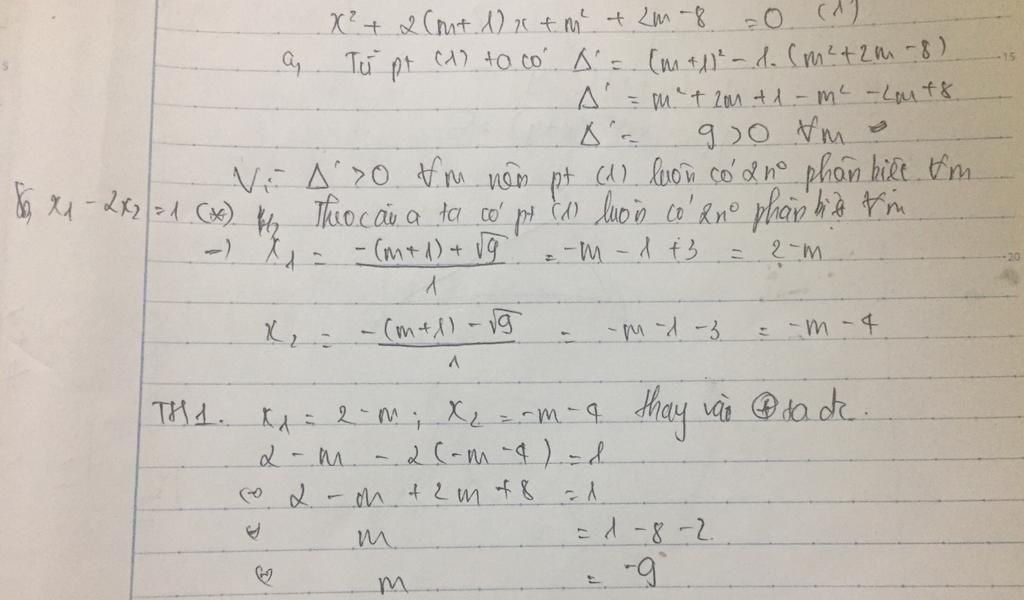 x² + 2(m+1)x + m² + 2m - 8 = 0 (1)
a, Từ pt (1) ta có Δ' = (m+1)² - 1.(m² + 2m - 8)
Δ' = m² + 2m + 1 - m² - 2m + 8
Δ' = 9 > 0 ∀m
Vì Δ' > 0 ∀m nên pt (1) luôn có 2 nº phân biệt ∀m
b, x₁ - 2x₂ = 1 (*) Theo câu a ta có pt (1) luôn có 2 nº phân biệ ∀m
→ x₁ = (-(m+1) + √9)/1 = -m - 1 + 3 = 2 - m
x₂ = (-(m+1) - √9)/1 = -m - 1 - 3 = -m - 4
TH1. x₁ = 2 - m ; x₂ = -m - 4 thay vào ta đc.
2 - m - 2(-m - 4) = 1
⇔ 2 - m + 2m + 8 = 1
⇔ m = 1 - 8 - 2
⇔ m = -9